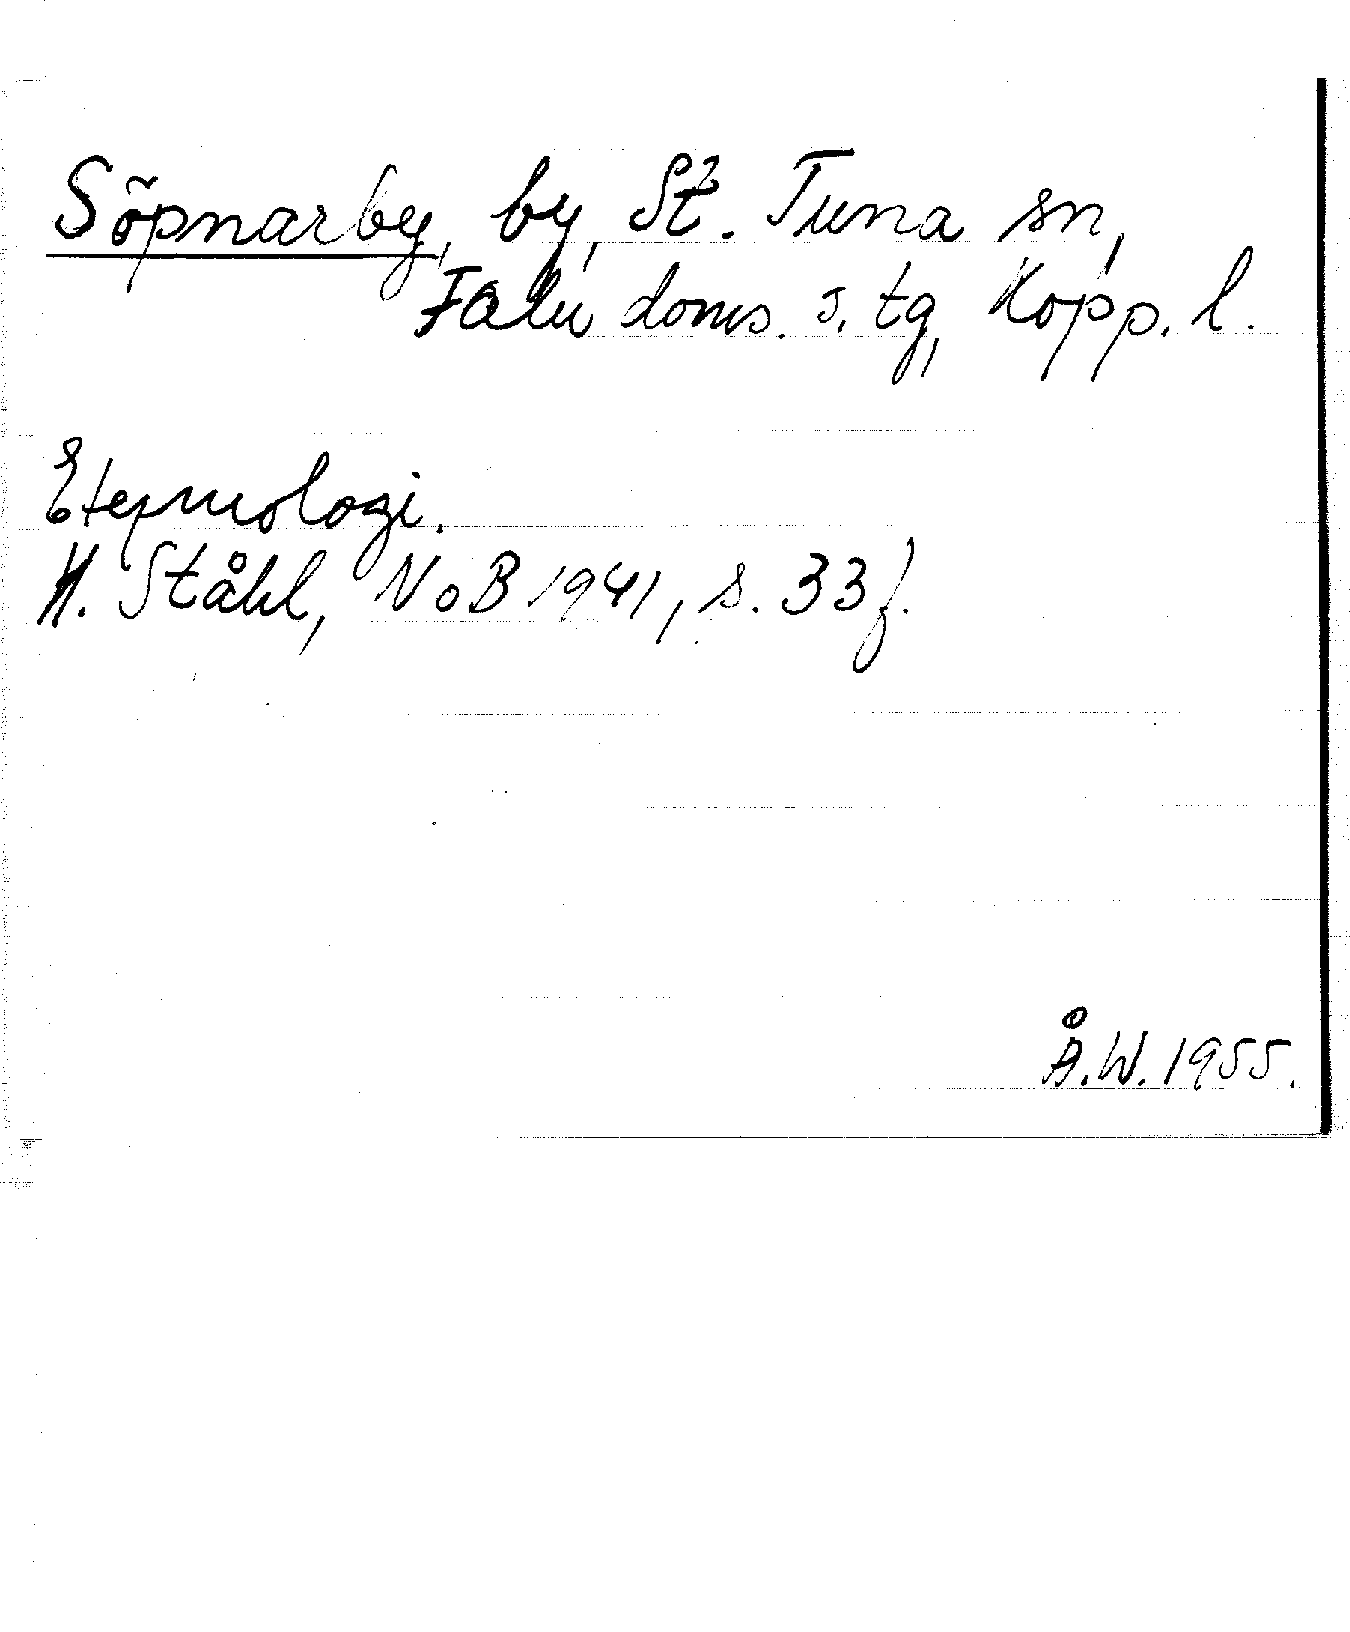 Söpnarby, by, St. Tuna sn,
Falu doms. s. tg, Kopp. l.
Etymologi.
H. Ståhl, NoB 1941, s. 33 f.
Å.W. 1955.